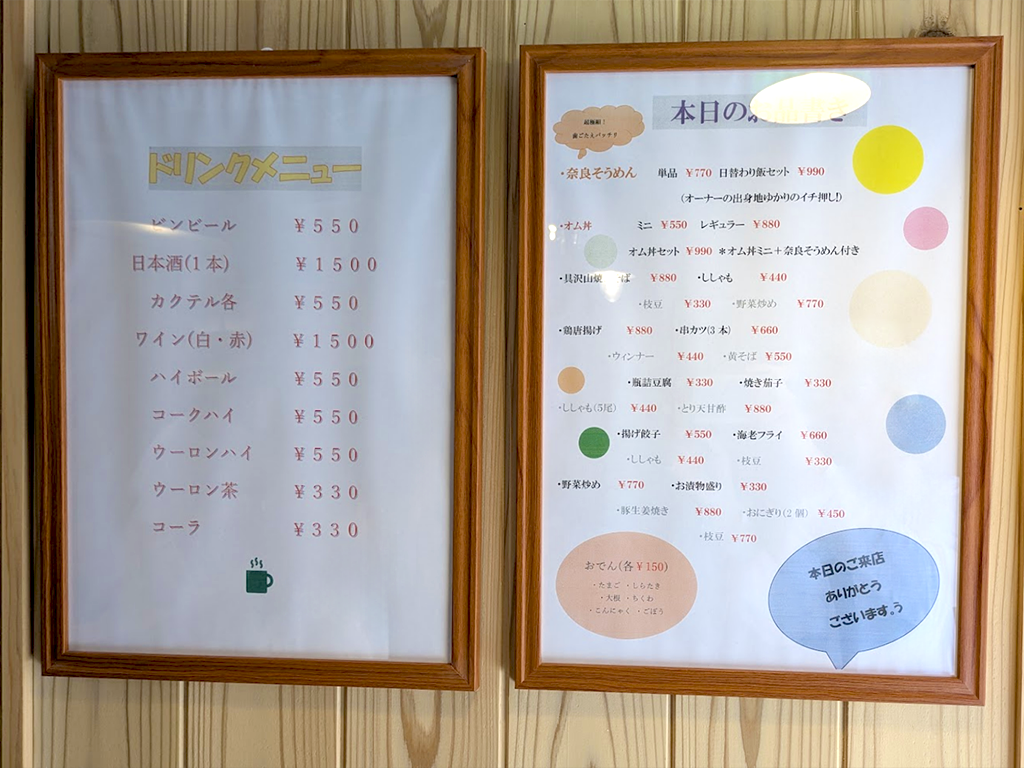 ドリンクメニュー
ビンビール ￥５５０
日本酒(１本) ￥１５００
カクテル各 ￥５５０
ワイン(白・赤) ￥１５００
ハイボール ￥５５０
コークハイ ￥５５０
ウーロンハイ ￥５５０
ウーロン茶 ￥３３０
コーラ ￥３３０
本日の
超極細！
歯ごたえバッチリ
・奈良そうめん 単品 ￥770 日替わり飯セット ￥990
(オーナーの出身地ゆかりのイチ押し!)
・オム丼 ミニ ￥550 レギュラー ￥880
オム丼セット ￥990 ＊オム丼ミニ＋奈良そうめん付き
・具沢山焼 ば ￥880 ・ししゃも ￥440
・枝豆 ￥330 ・野菜炒め ￥770
・鶏唐揚げ ￥880 ・串カツ(3本) ￥660
・ウィンナー ￥440 ・黄そば ￥550
・瓶詰豆腐 ￥330 ・焼き茄子 ￥330
・ししゃも(5尾) ￥440 ・とり天甘酢 ￥880
・揚げ餃子 ￥550 ・海老フライ ￥660
・ししゃも ￥440 ・枝豆 ￥330
・野菜炒め ￥770 ・お漬物盛り ￥330
・豚生姜焼き ￥880 ・おにぎり(2個) ￥450
・枝豆 ￥770
おでん(各￥150)
・たまご ・しらたき
・大根 ・ちくわ
・こんにゃく ・ごぼう
本日のご来店
ありがとう
ございます。う